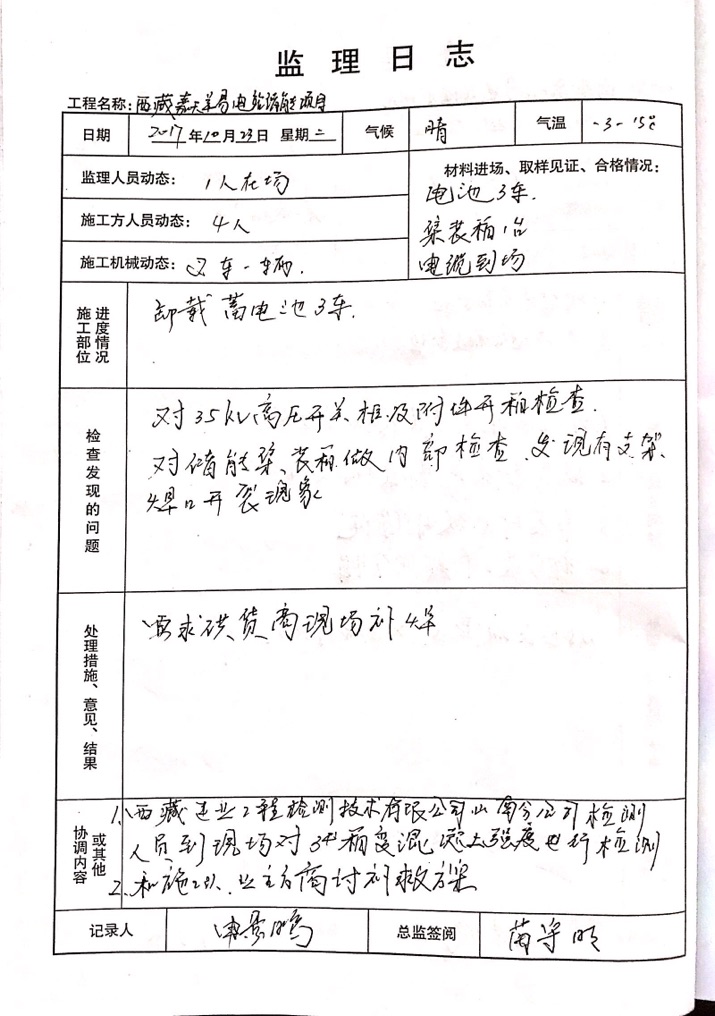 监理日志
工程名称：西藏嘉天羊易电站储能项目
日期 2017年10月23日 星期二 气候 晴 气温 -3-15℃
监理人员动态：1人在场
施工方人员动态：4人
施工机械动态：叉车一辆.
材料进场、取样见证、合格情况：
电池3车.
集装箱1台
电缆到场
施工部位 进度情况
卸载蓄电池3车.
检查发现的问题
对35kV高压开关柜及附件开箱检查.
对储能集装箱做内部检查、发现有支架、
焊口开裂现象
处理措施、意见、结果
要求供货商现场补焊
协调内容或其他
1、西藏建业工程检测技术有限公司山南分公司检测
人员到现场对3#箱变混凝土强度进行检测
2、和施工队、业主方商讨补救方案
记录人 申景鸣 总监签阅 苗守明